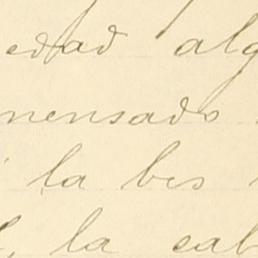 edad alg
mensado
la bes
la cab